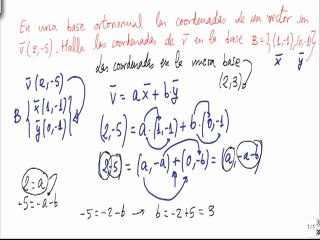 En una base ortonormal las coordenadas de un vector son
v̄(2,-5). Halla las coordenadas de v̄ en la base B={(1,-1),(0,-1)}
x̄ ȳ
las coordenadas en la nueva base
(2,3)
v̄(2,-5)
B { x̄(1,-1)
ȳ(0,-1)
v̄ = a x̄ + b·ȳ
(2,-5) = a·(1,-1) + b·(0,-1)
(2,-5) = (a,-a)+(0,-b) = (a,-a-b)
2=a
-5=-a-b
-5=-2-b → b=-2+5=3
1/1